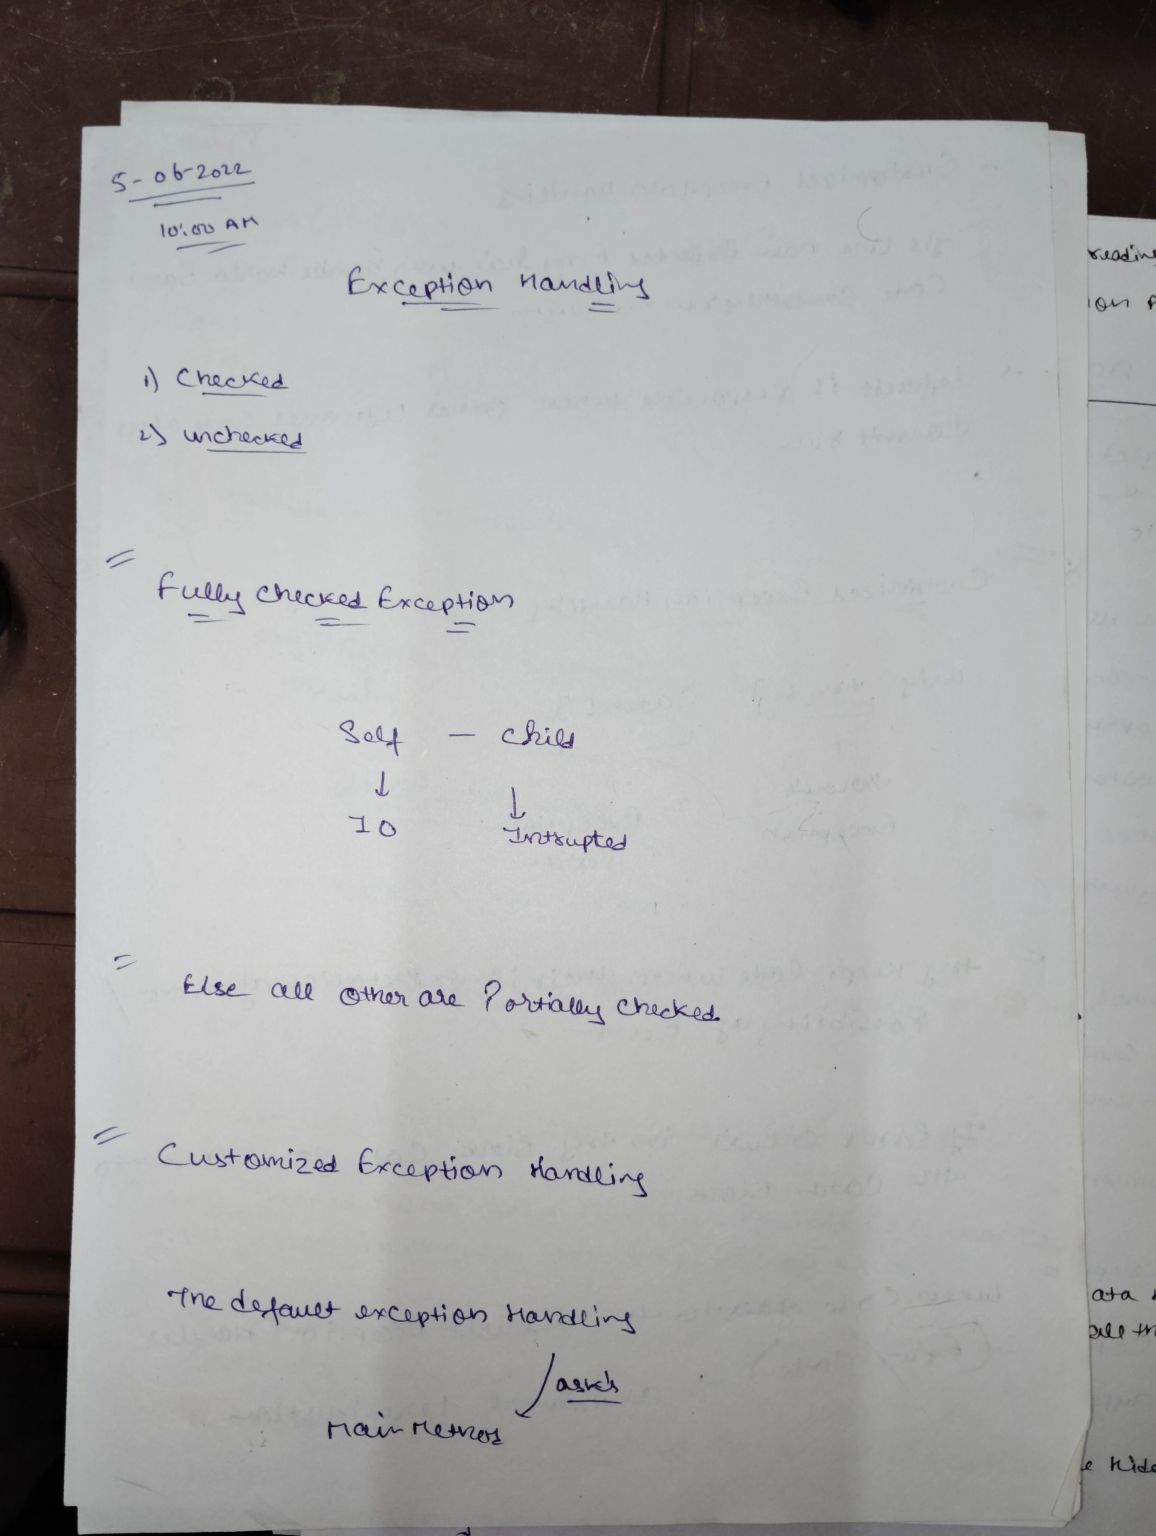 5-06-2022
10:00 AM
Exception Handling
1) Checked
2) unchecked
Fully Checked Exception
Self - child
IO Intrupted
Else all other are Partially checked
Customized Exception Handling
The default exception Handling
ask's
Main Method
reading
on
ata
all th
e Hide